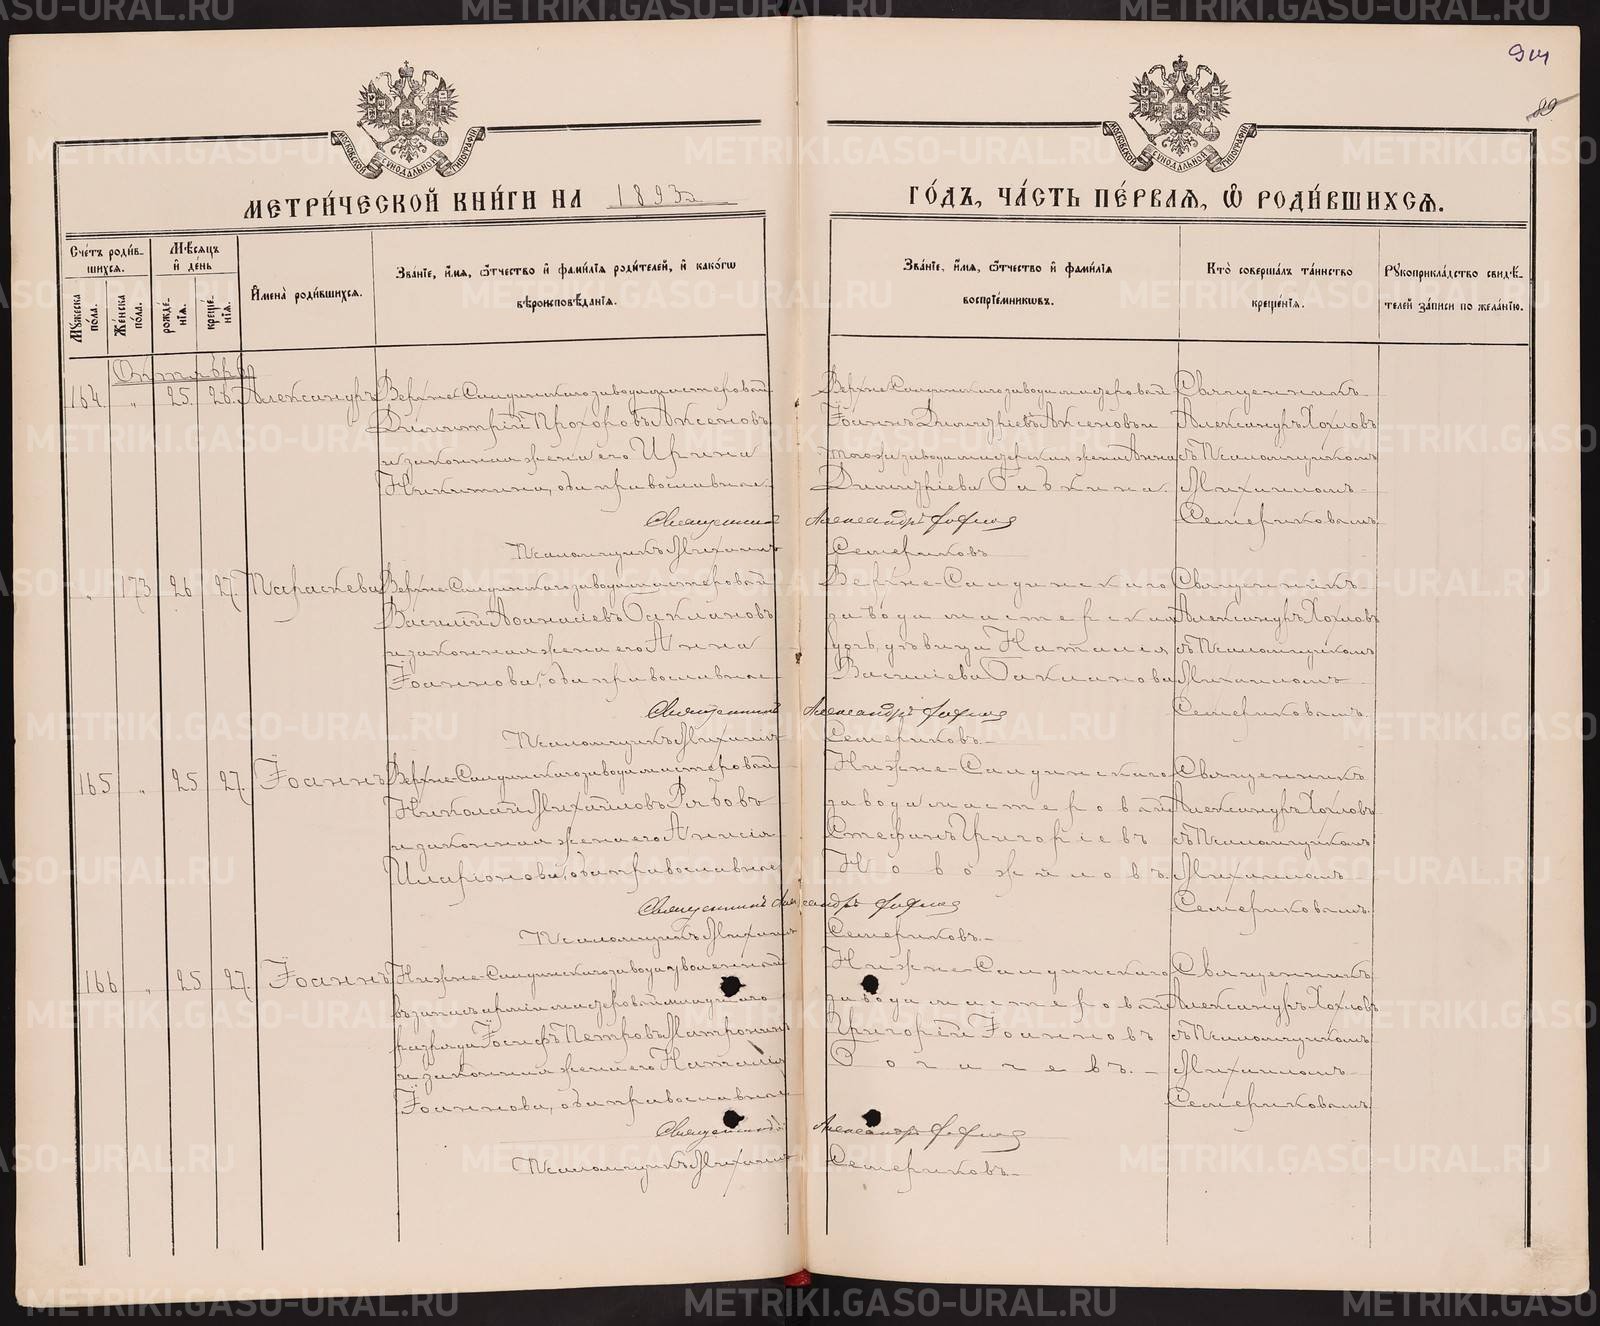 МЕТРИ́ЧЕСКОЙ КНИ́ГИ НА 1893
ГО́ДЪ, ЧА́СТЬ ПЕ́РВАЯ, Ѽ РОДИ́ВШИХСЯ.
МОСКОВСКОЙ СѴНОДАЛЬНОЙ ТИПОГРАФІИ
МОСКОВСКОЙ СѴНОДАЛЬНОЙ ТИПОГРАФІИ
Сче́тъ роди́вшихся.
Мѣсяцъ и де́нь
Мꙋ́жеска по́ла.
Же́нска по́ла.
рожде́нія.
креще́нія.
Имена̀ роди́вшихся.
Зва́ніе, и́мя, ѻ҆́тчество и фами́лія роди́телей, и како́гѡ вѣроисповѣ́данія.
Зва́ніе, и́мя, ѻ҆́тчество и фами́лія воспріе́мникѡвъ.
Кто̀ соверша́лъ та́инство креще́нія.
Рꙋкоприкла́дство свидѣ́телей за́писи по жела́нію.
Октябрь
164. " 25. 26. Александръ
Верхне-Салдинскаго завода мастеровой
Димитрій Прохоровъ Аксеновъ
и законная жена его Ирина
Никитина, оба православные.
Верхне-Салдинскаго завода мастеровой
Іоаннъ Димитріевъ Аксеновъ и
тогоже завода мастерская жена Анна
Димитріева Бабкина.
Священникъ
Александръ Хохловъ
съ Псаломщикомъ
Михаиломъ
Семериковымъ
Священникъ Александръ Хохловъ
Псаломщикъ Михаилъ Семериковъ
" 173 26 27. Параскева
Верхне-Салдинскаго завода мастеровой
Василій Аѳанасіевъ Баклановъ
и законная жена его Анна
Іоаннова, оба православные
Верхне-Салдинскаго
завода мастерская
дочь, дѣвица Наталія
Василіева Бакланова
Священникъ
Александръ Хохловъ
съ Псаломщикомъ
Михаиломъ
Семериковымъ.
Священникъ Александръ Хохловъ
Псаломщикъ Михаилъ Семериковъ.
165 " 25 27. Іоаннъ
Верхне-Салдинскаго завода мастеровой
Николай Михайловъ Рябовъ
и законная жена его Анисія
Иларіонова, оба православные
Нижне-Салдинскаго
завода мастеровой
Стефанъ Григоріевъ
Новожиловъ.
Священникъ
Александръ Хохловъ
съ Псаломщикомъ
Михаиломъ
Семериковымъ.
Священникъ Александръ Хохловъ
Псаломщикъ Михаилъ Семериковъ.
166 " 25 27. Іоаннъ
Нижне-Салдинскаго завода уволенный
въ запасъ арміи мастеровой младшаго
разряда Іосифъ Петровъ Матронинъ
и законная жена его Наталія
Іоаннова, оба православные
Нижне-Салдинскаго
завода мастеровой
Григорій Іоанновъ
Священникъ
Александръ Хохловъ
съ Псаломщикомъ
Михаиломъ
Семериковымъ.
Священникъ Александръ Хохловъ
Псаломщикъ Михаилъ Семериковъ.
METRIKI.GASO-URAL.RU